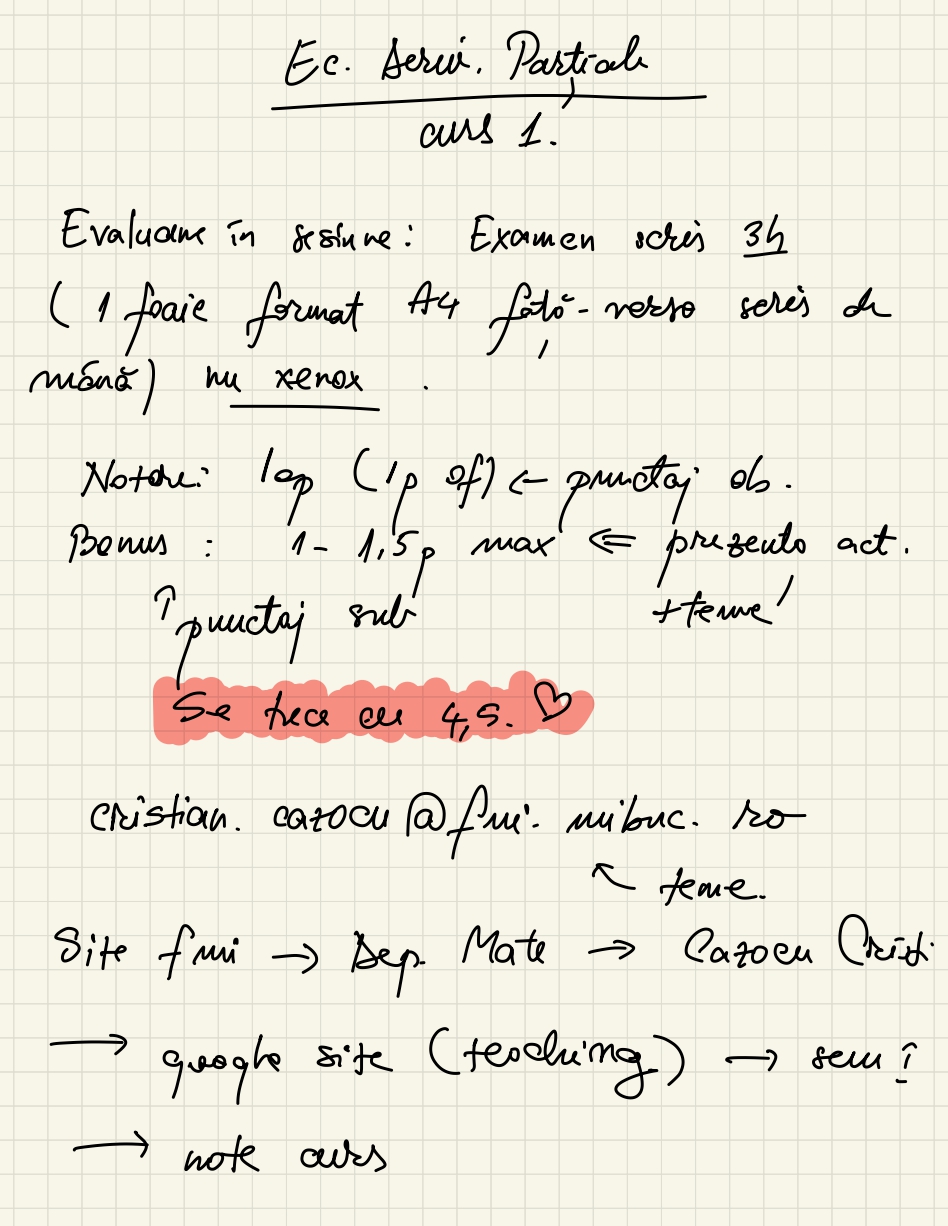 Ec. Deriv. Parțiale
curs 1.
Evaluare în sesiune: Examen scris 3h
(1 foaie format A4 față-verso scris de
mână) nu xerox.
Notare: 10p (1p of) ← punctaj ob.
Bonus: 1-1,5p max ⇐ prezența act.
↑ punctaj sub +teme
Se trece cu 4,5. ♡
cristian.cazacu@fmi.unibuc.ro
↖ teme.
Site fmi → Dep. Mate → Cazacu Cristi
→ google site (teaching) → sem I
→ note curs